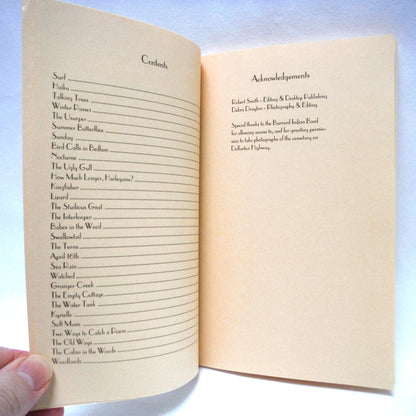 Contents
Surf
Haiku
Talking Trees
Winter Pansies
The Usurper
Summer Butterflies
Sunday
Bird Calls in Bedlam
Nocturne
The Ugly Gull
How Much Longer, Harlequins?
Kingfisher
Lizard
The Studious Great
The Interloper
Babes in the Wood
Swallowtail
The Terns
April 16th
Sea Rain
Watched
Granger Creek
The Empty Cottage
The Water Tank
Kyrielle
Salt Music
Two Ways to Catch a Poem
The Old Ways
The Cabin in the Woods
Woodlands
Acknowledgements
Robert Smith - Editing & Desktop Publishing
Debra Drayton - Photography & Editing
Special thanks to the Burrard Indian Band
for allowing access to, and for granting permis-
sion to take photographs of the cemetery on
Dollarton Highway.